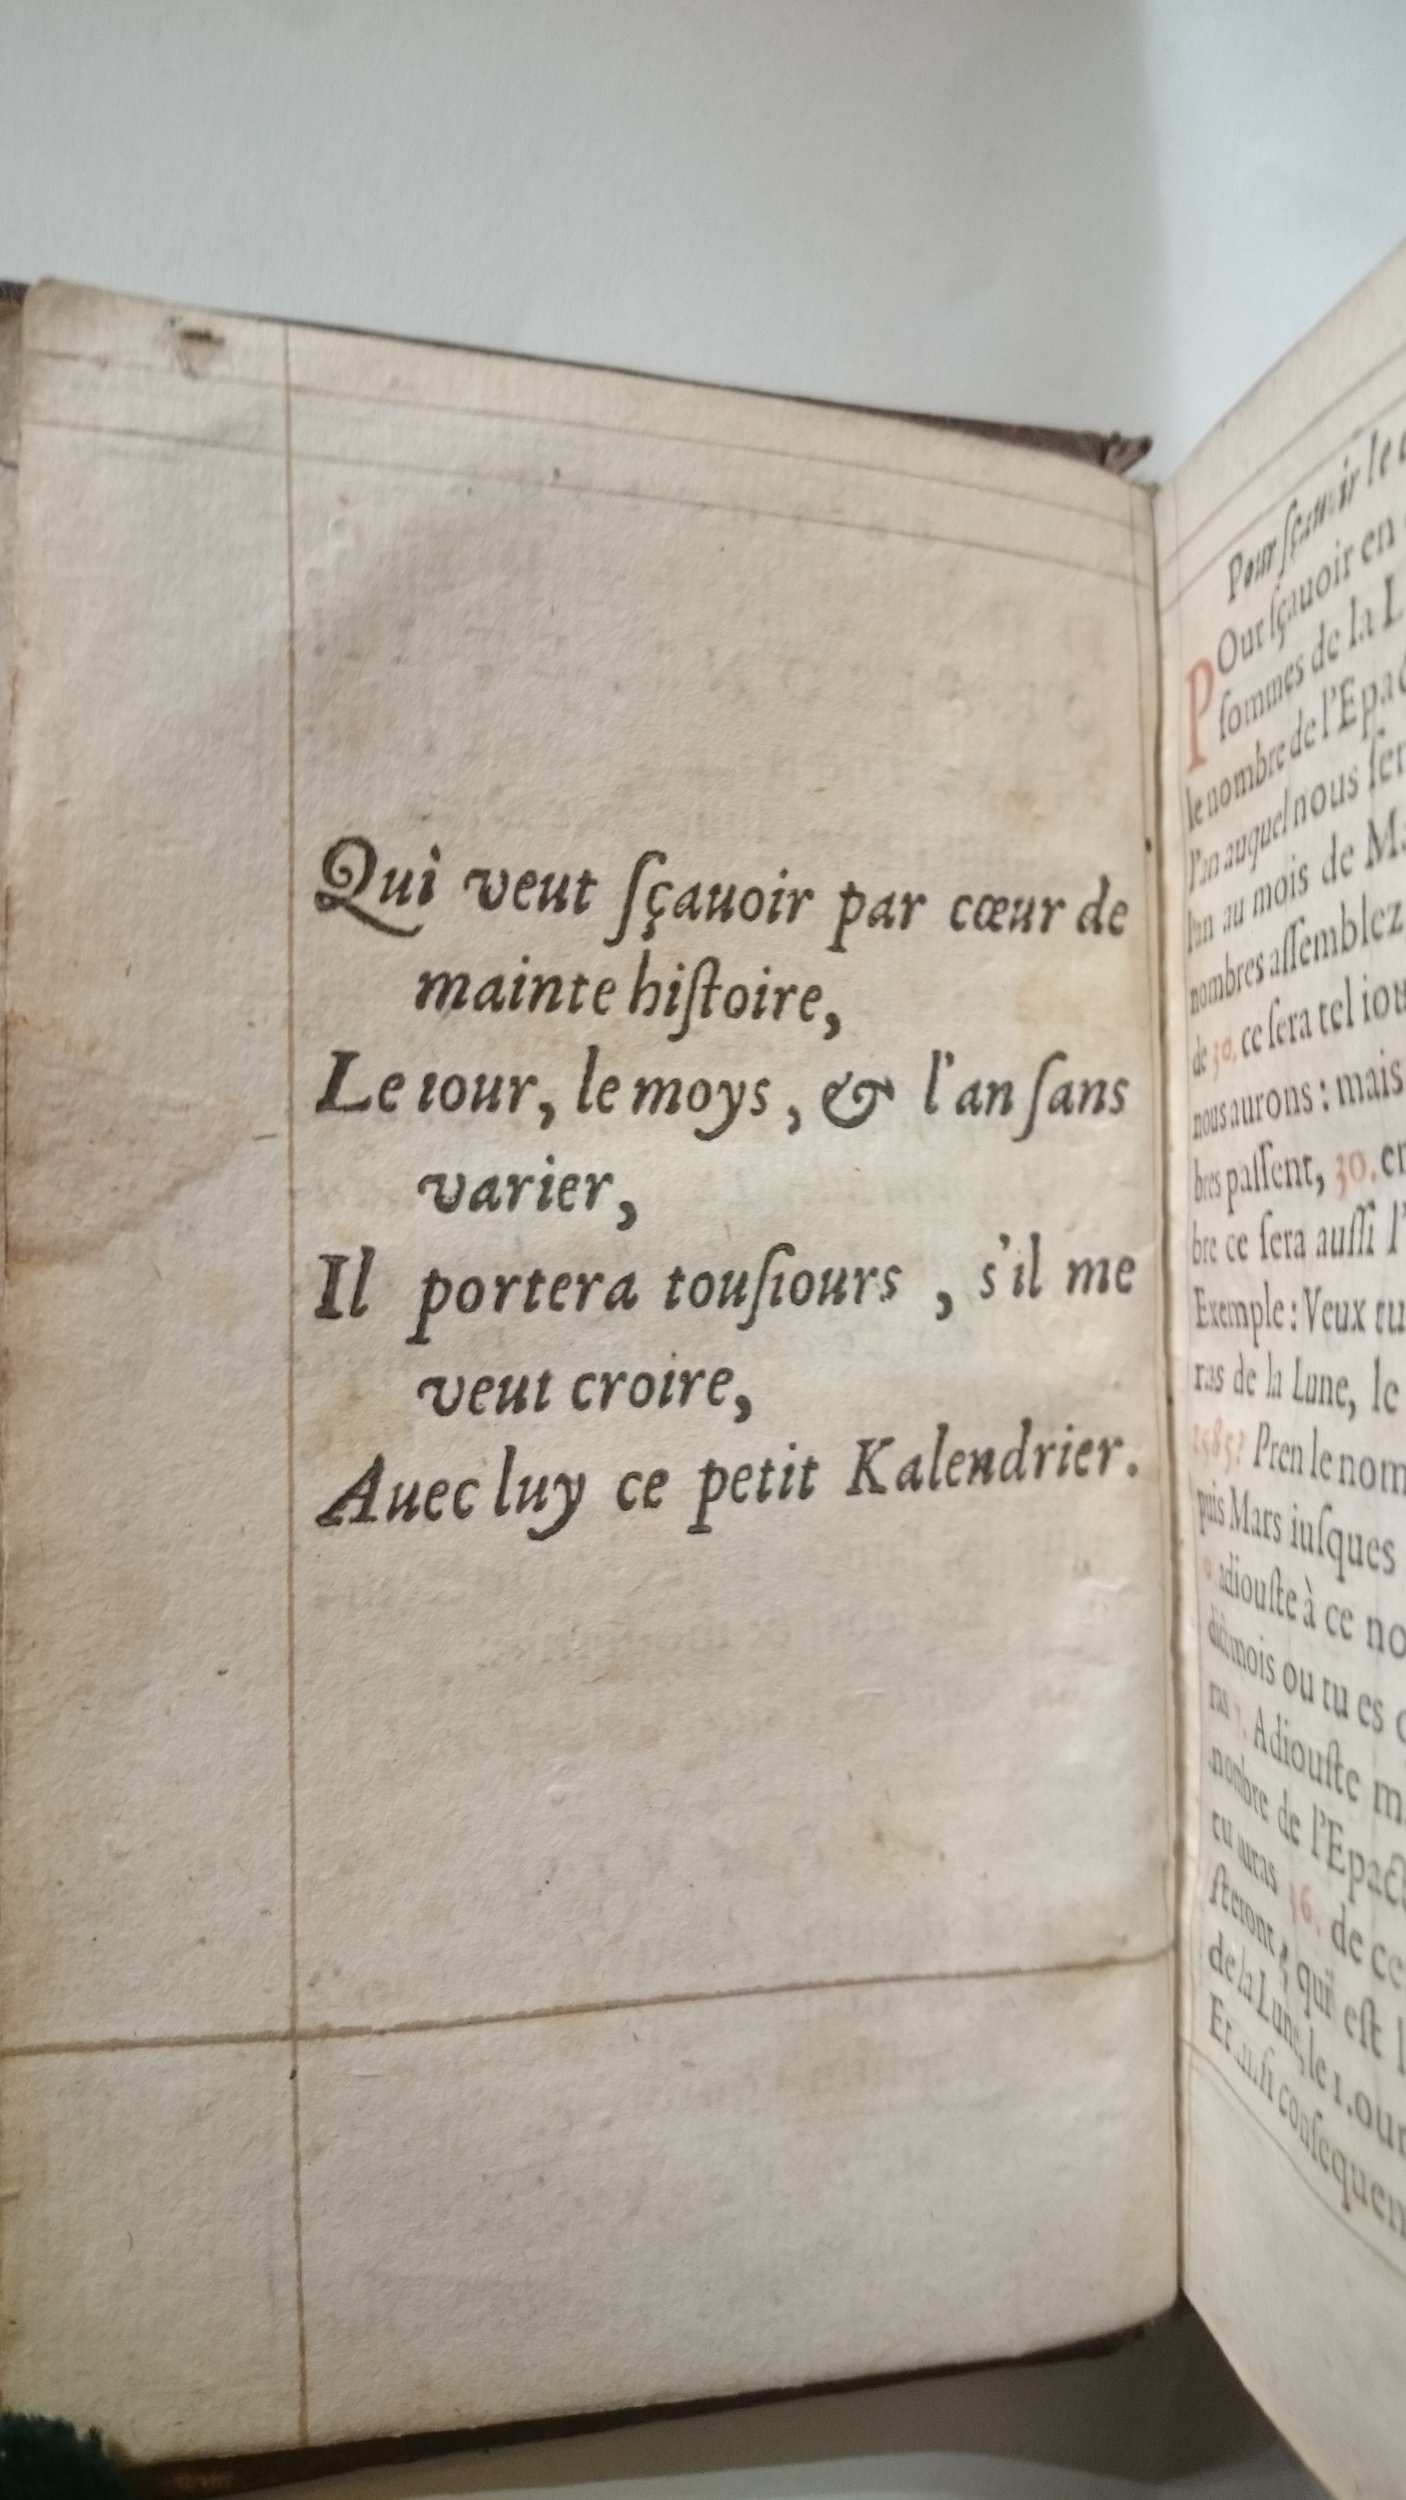 Qui veut ſçauoir par cœur de
mainte hiſtoire,
Le iour, le moys, & l'an ſans
varier,
Il portera touſiours, s'il me
veut croire,
Auec luy ce petit Kalendrier.
Pour ſçauoir le
POur ſçauoir en
ſommes de la L
le nombre de l'Epac
l'an auquel nous ſer
l'an au mois de Ma
nombres aſſemblez
de 30. ce ſera tel iou
nous aurons: mais
bres paſſent, 30. en
bre ce ſera auſſi l'
Exemple: Veux tu
ras de la Lune, le
1585? Pren le nom
puis Mars iuſques
adiouſte à ce no
mois ou tu es
ras Adiouſte m
nombre de l'Epact
tu auras 36. de ce
ſteront qui eſt l
de la Lune, le 1. our
Et conſequen